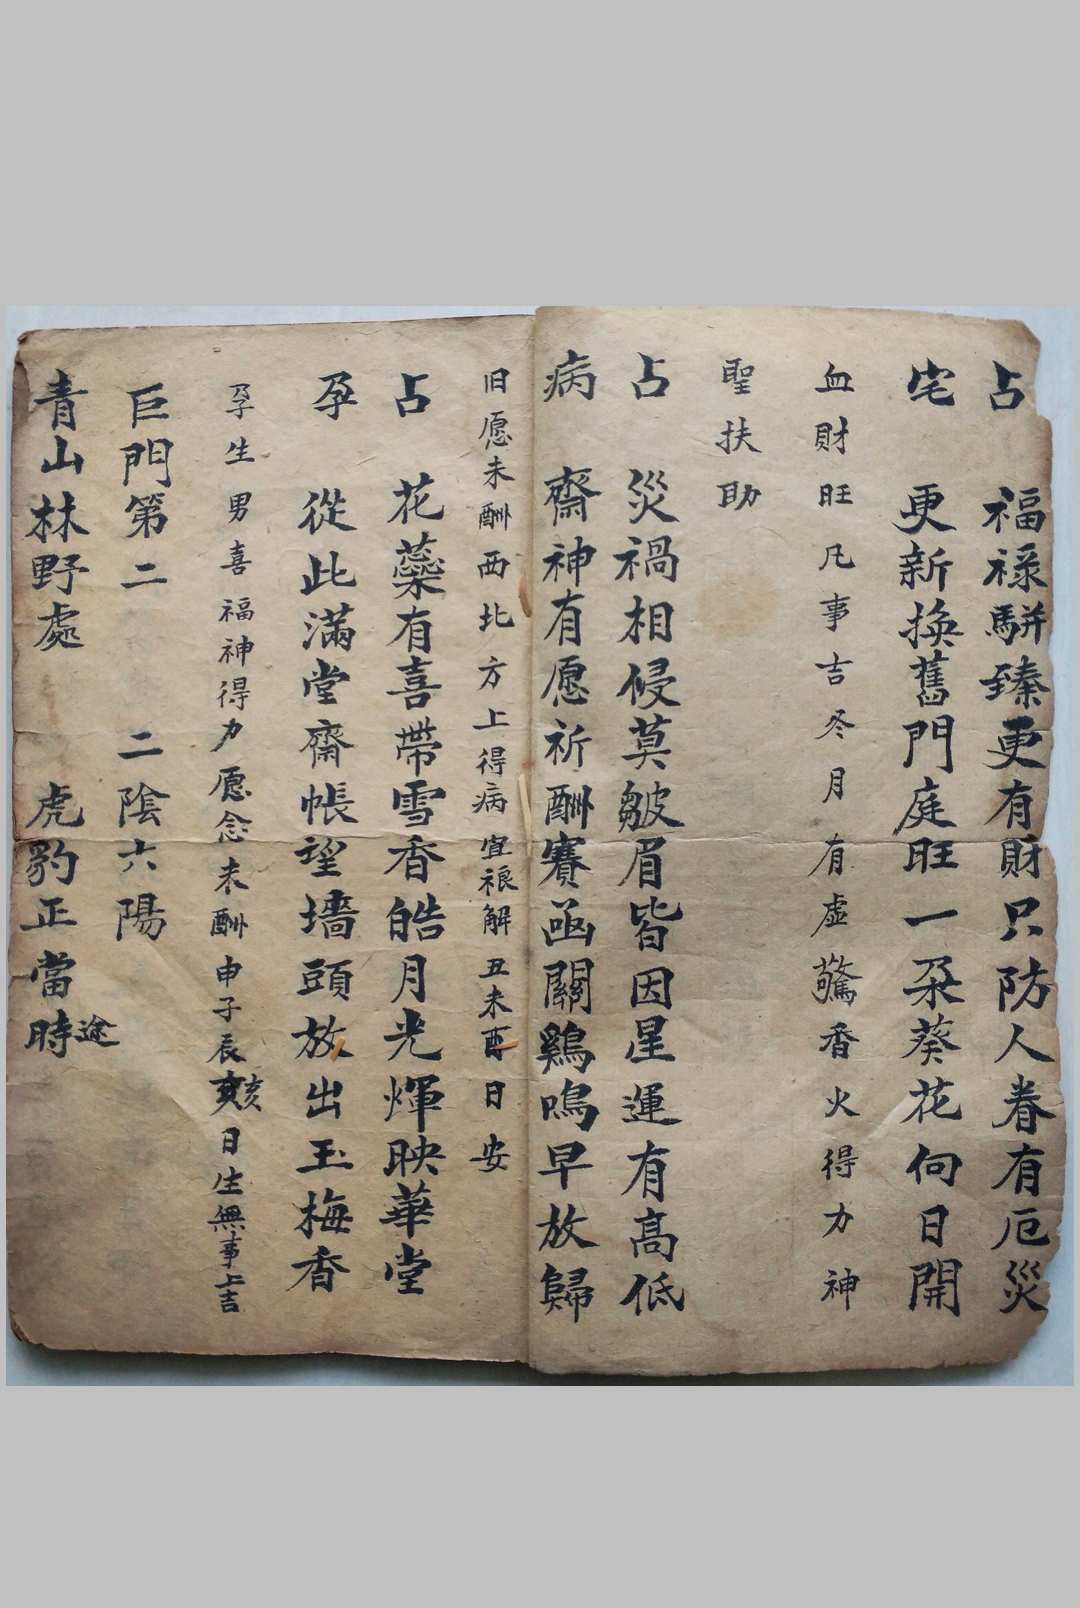 占 福祿駢臻更有財只防人眷有厄災
宅 更新換舊門庭旺一朶葵花向日開
血財旺凡事吉冬月有虛驚香火得力神
聖扶助
占 災禍相侵莫皺眉皆因星運有高低
病 齋神有愿祈酬賽函關鷄鳴早放歸
旧愿未酬西北方上得病宜禳解丑未酉日安
占 花蘂有喜帶雪香皓月光煇映華堂
孕 從此滿堂齋帳望墻頭放出玉梅香
孕生男喜福神得力愿念未酬申子辰亥日生無事上吉
亥
巨門第二 二陰六陽
青山林野處 虎豹正當時
途